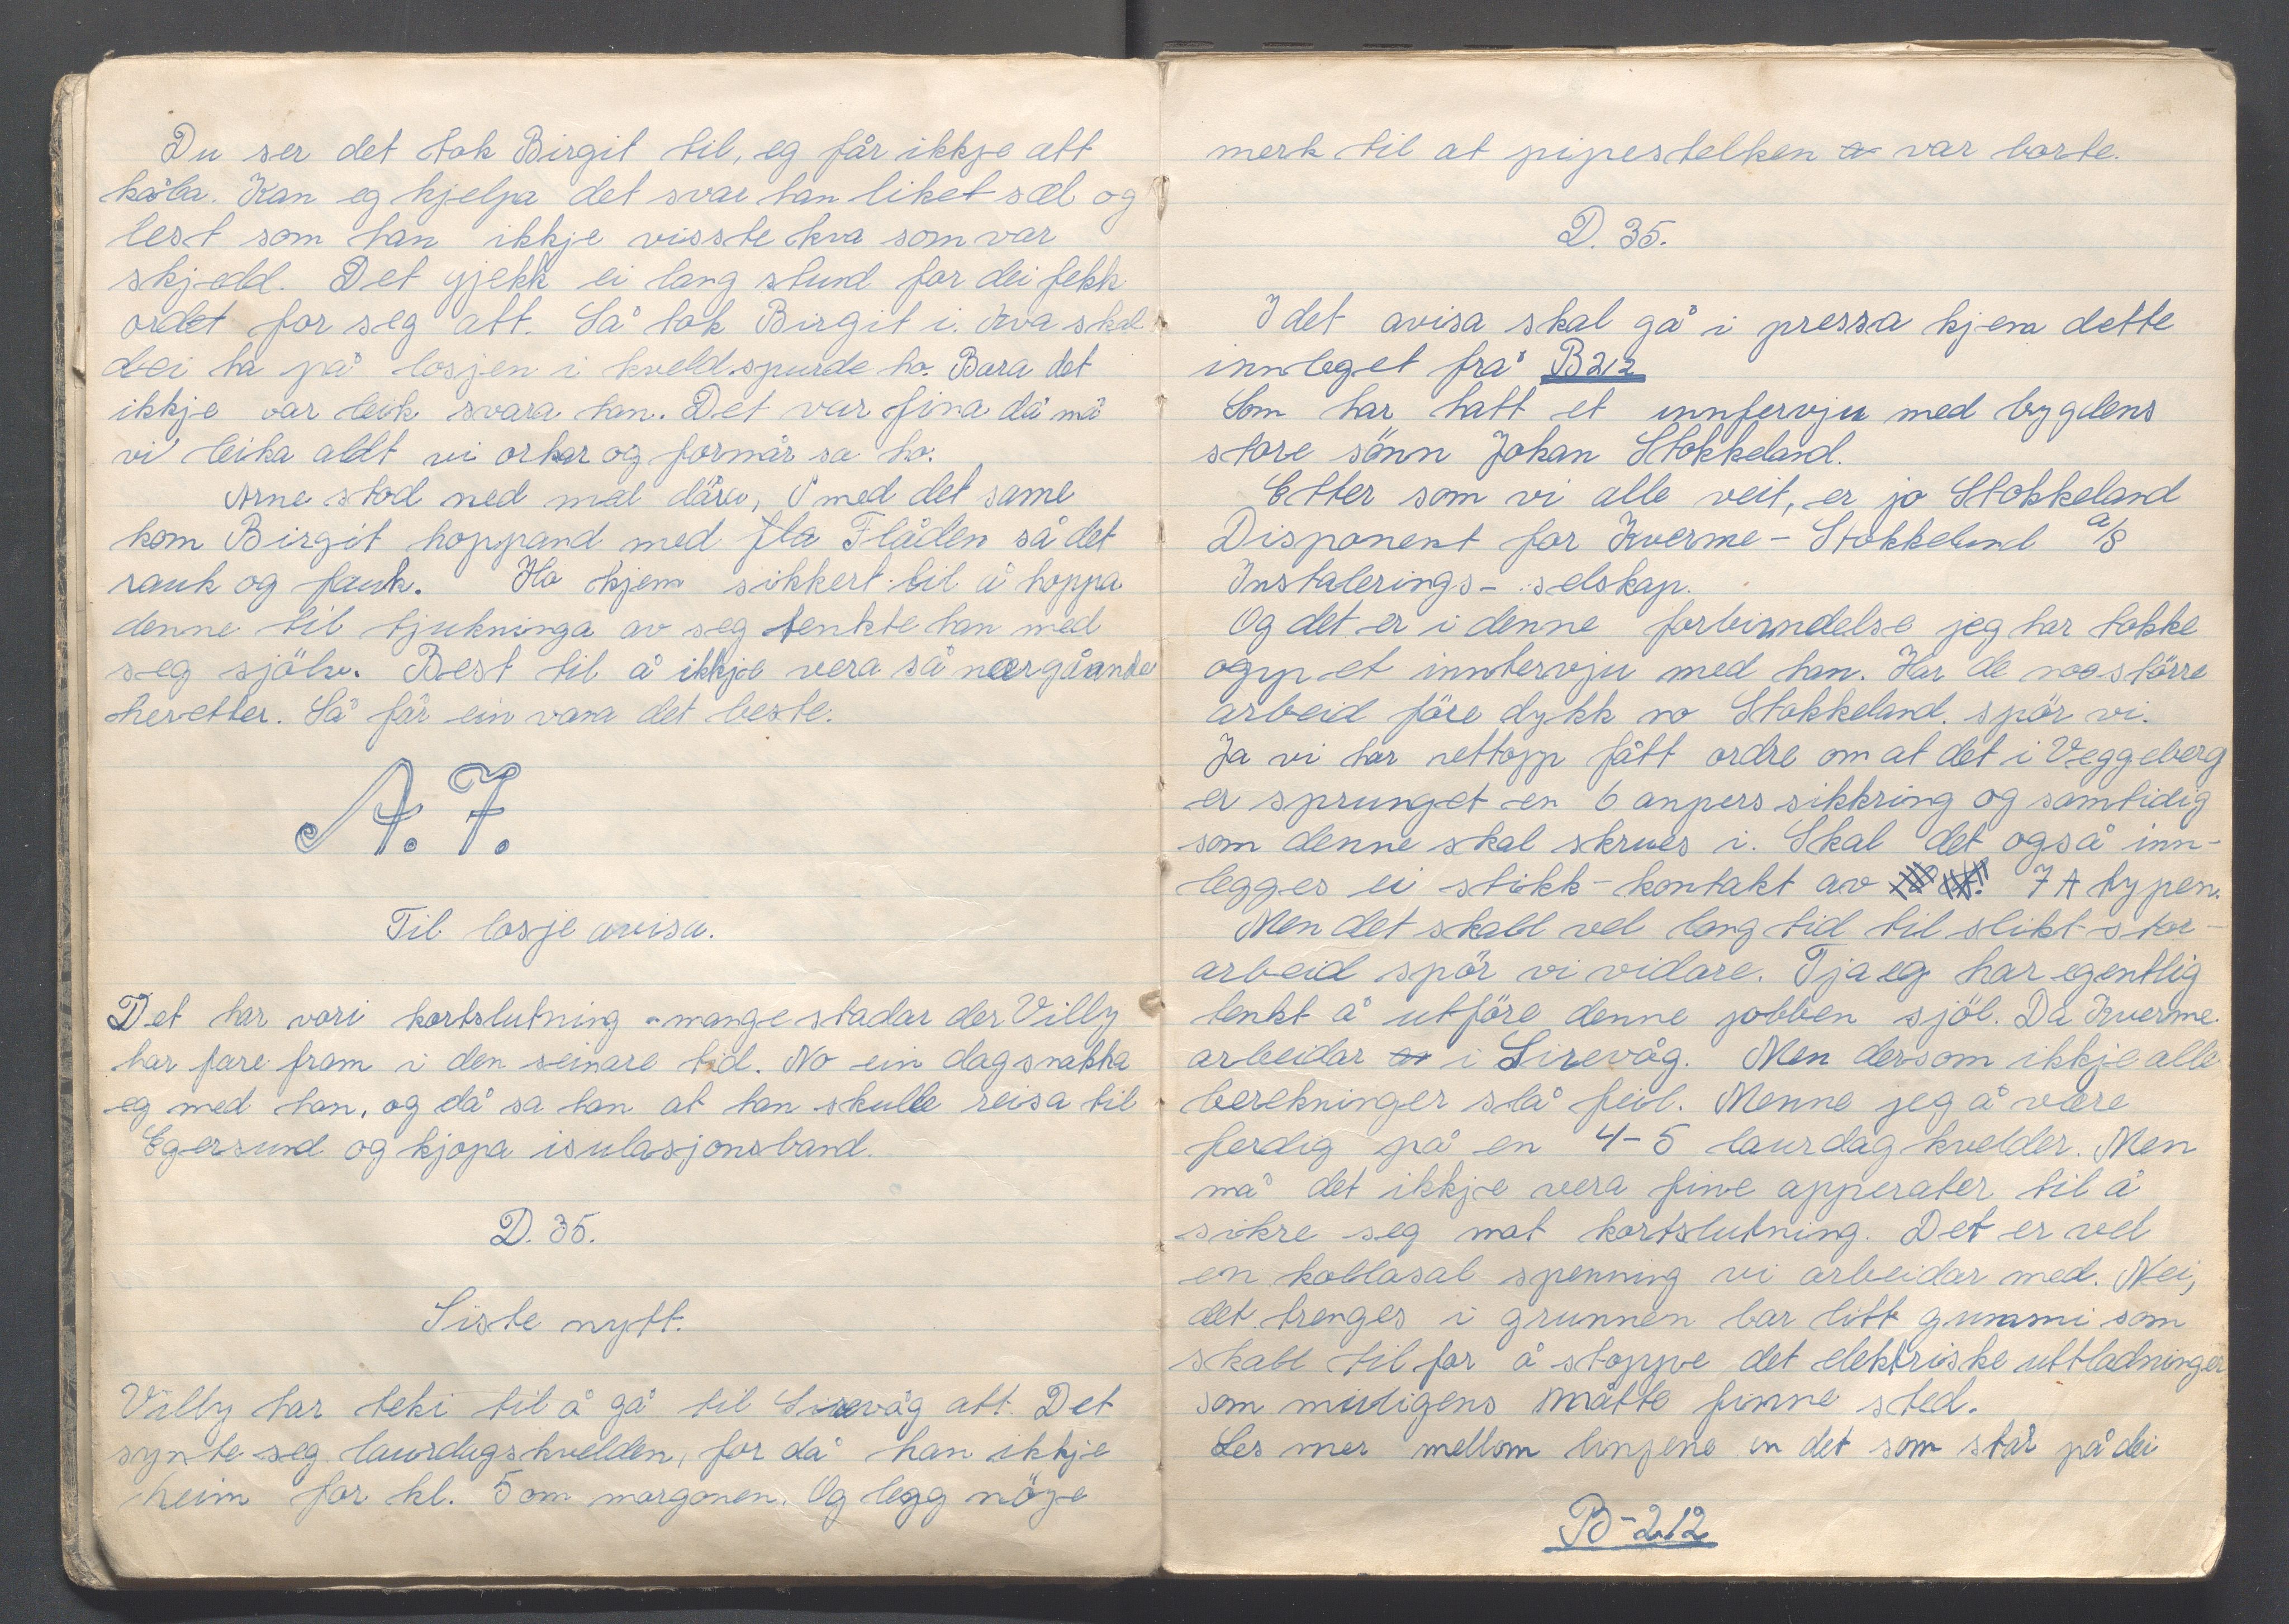 Du ser det tok Birgit til, eg får ikkje att
kåla. Kan eg hjelpa det svar han liket sæl og
lest som han ikkje visste kva som var
skjedd. Det gjekk ei lang stund for dei fekk
ordet for seg att. Så tok Birgit i. Kva skal
dei ha på losjen i kveld spurde ho. Bara det
ikkje var leik svara han. Det var fina då må
vi leika aldt vi orkar og formår sa ho.
Arne stod ned med døra, I med det same
kom Birgit hoppand med fla Flåden så det
rauk og fauk. Ho kjem sikkert til å hoppa
denne til tjukninga av seg tenkte han med
seg sjölv. Best til å ikkje vera så nærgåande
heretter. Så får ein vona det beste.
A. F.
Til losje avisa.
Det har vori kortslutning mange stadar der Villy
har fare fram i den seinare tid. No ein dag snakka
eg med han, og då sa han at han skulle reisa til
Egersund og kjopa isulasjonsband.
D. 35.
Siste nytt.
Villy har teki til å gå til Sirevåg att. Det
synte seg laurdagskvelden, for då han ikkje
heim for kl. 5 om morgonen. Og legg nöye
merk til at pipestelken a var borte.
D. 35.
I det avisa skal gå i pressa kjem dette
innleget frå B212
Som har hatt et innfervju med bygdens
store sönn Johan Stokkeland.
Etter som vi alle veit, er jo Stokkeland
Disponent for Kverme - Stokkeland a/s
Instalerings- selskap.
Og det er i denne forbinndelse jeg har tokke
opp et inntervju med han. Har de noo större
arbeid före dykk no Stokkeland. spör vi.
Ja vi har nettopp fått ordre om at det i Veggeberg
er sprunget en 6 anpers sikkring og samtidig
som denne skal skrues i. Skal det også inn-
legges ei stikk-kontakt av 7 A typen.
Men det skall vel lang tid til slikt stor-
arbeid spör vi vidare. Tja eg har egentlig
tenkt å utföre denne jobben sjöl. Da Kverme
arbeidar i Sirevåg. Men dersom ikkje alle
berekninger slå feil. Menne jeg å være
ferdig på en 4-5 laurdag kvelder. Men
må det ikkje vera fine apperater til å
sikre seg mot kortslutning. Det er vel
en kollasal spenning vi arbeidar med. Nei,
det trenges i grunnen bar litt gummi som
skall til for å stoppe det elektriske uttladninger
som muligens måtte finne sted.
Les mer mellom linjene en det som står på dei
B-212